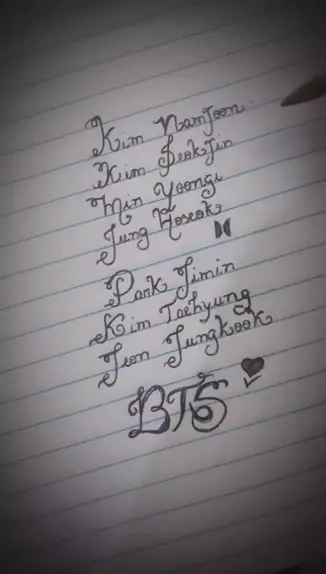 Kim Namjoon
Kim Seokjin
Min Yoongi
Jung Hoseok
Park Jimin
Kim Taehyung
Jeon Jungkook
BTS